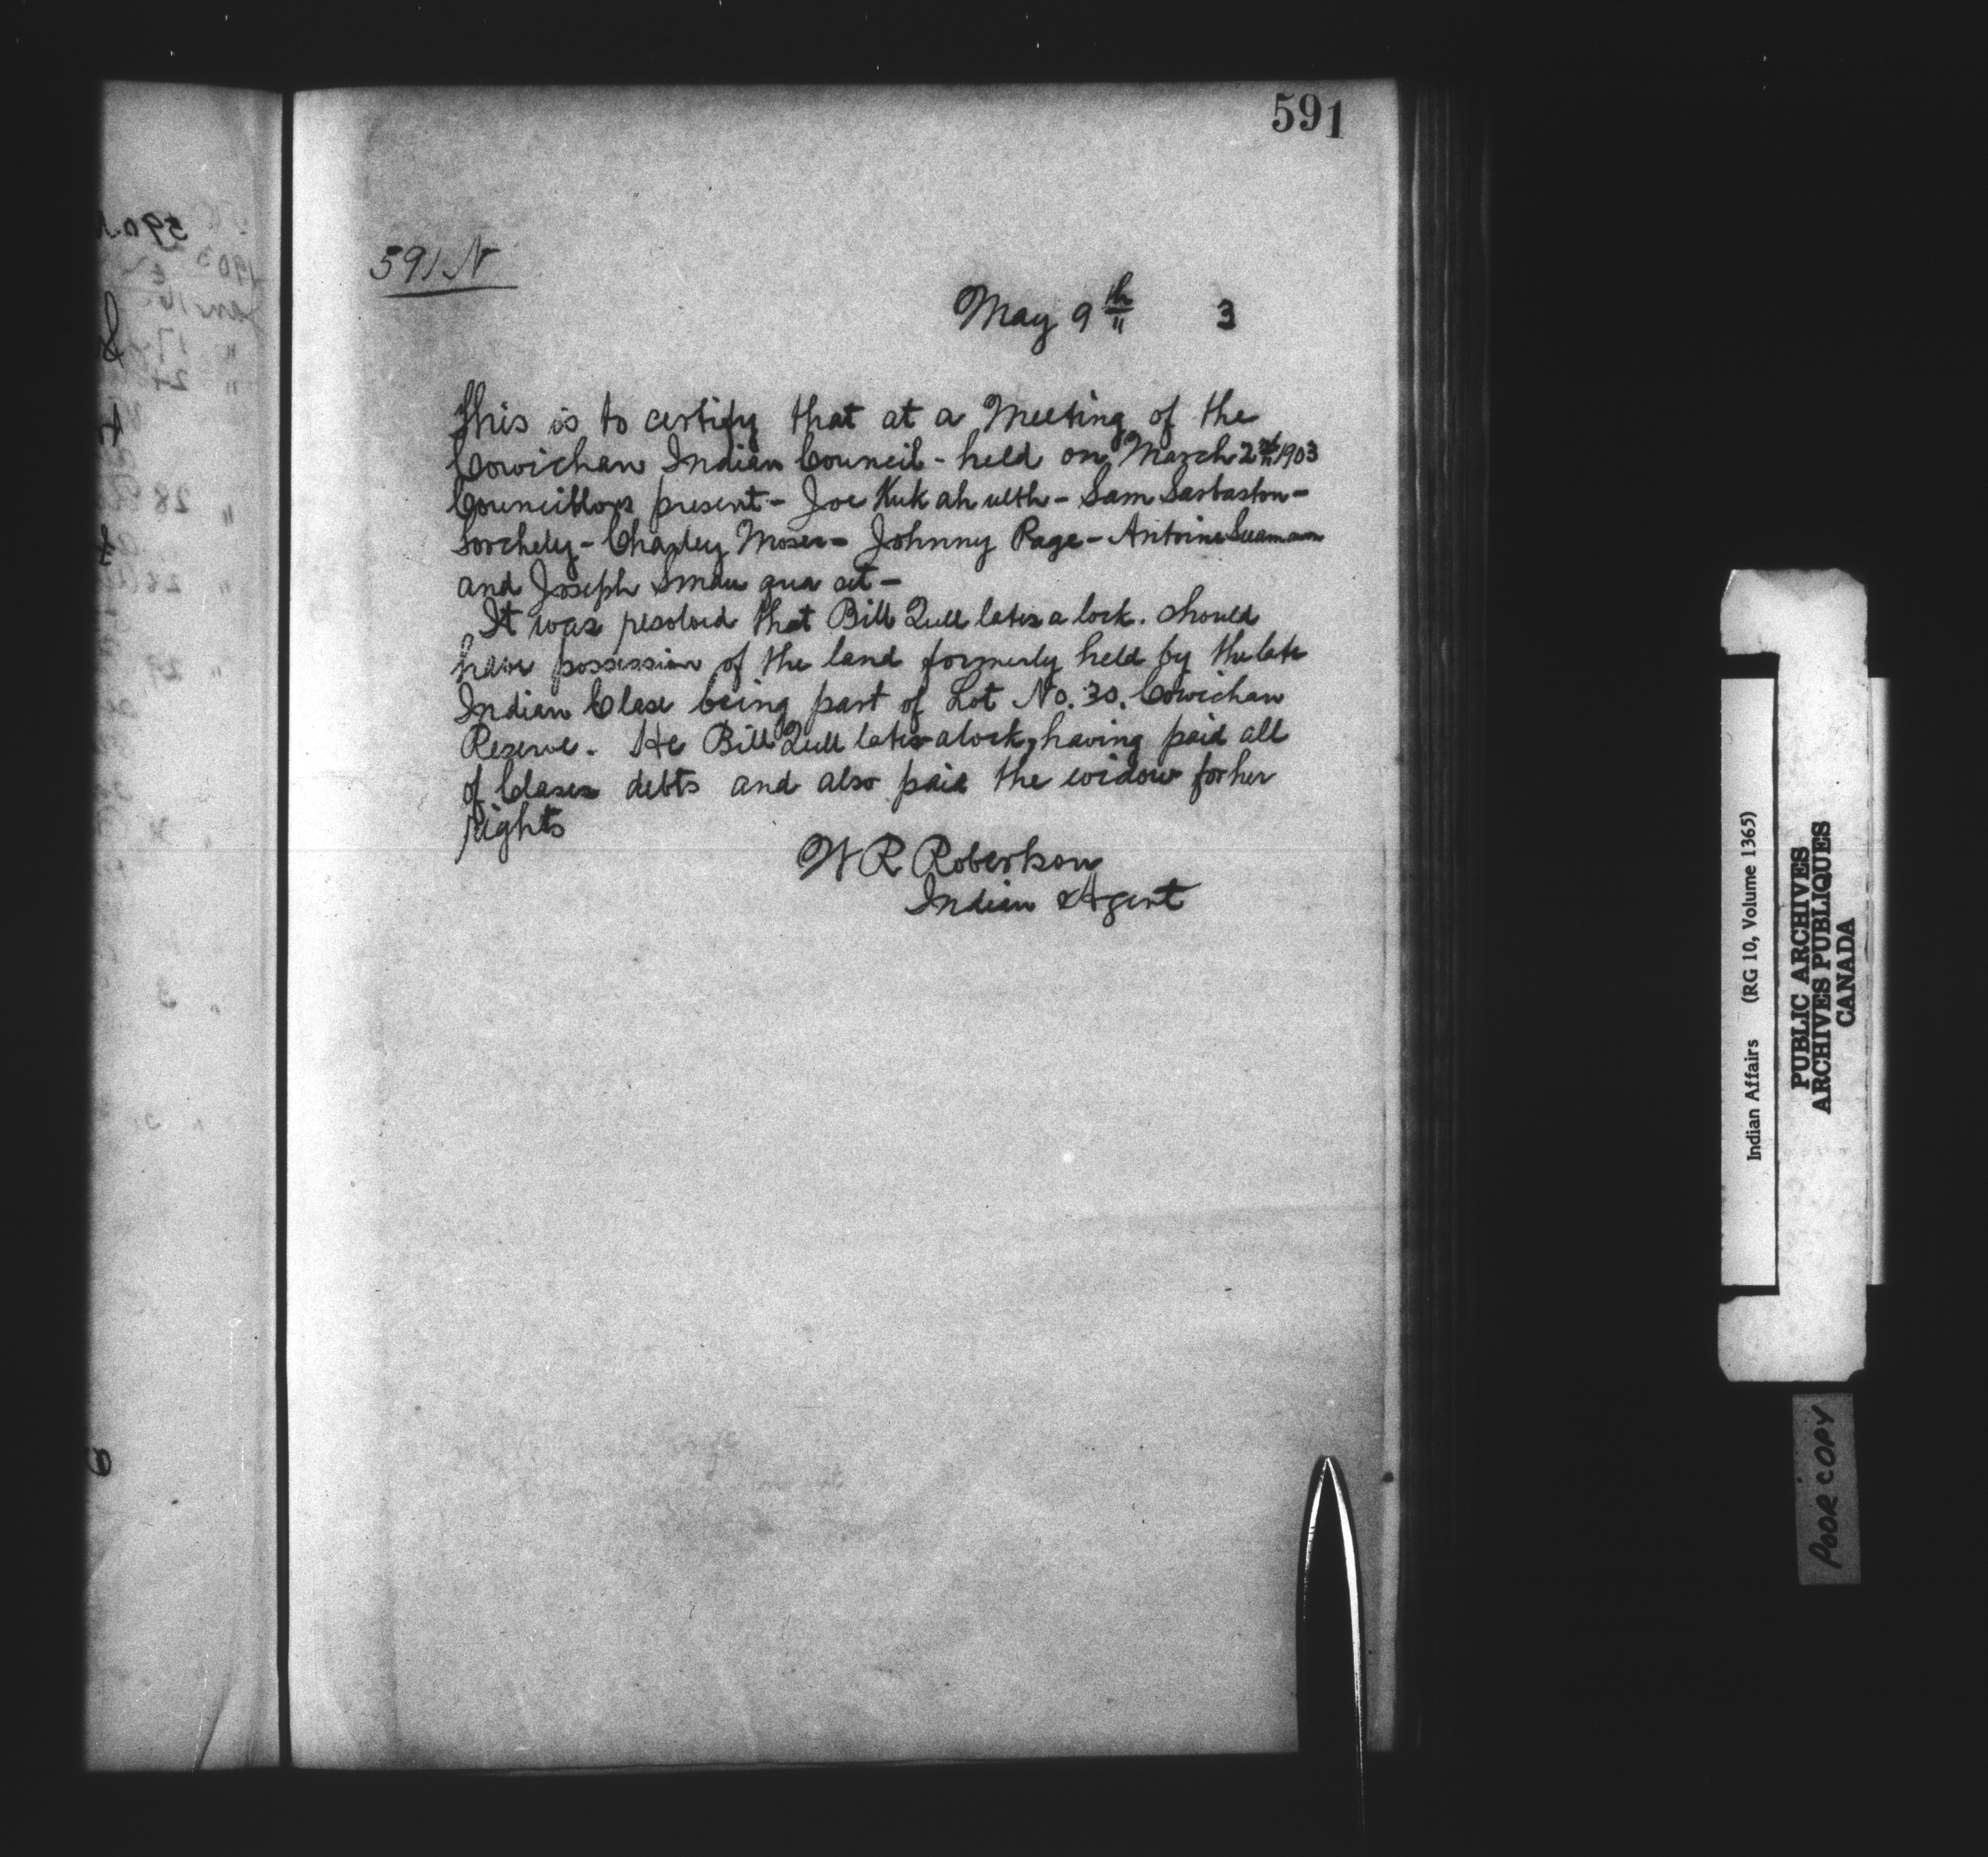 591
591 N
May 9th 3
This is to certify that at a Meeting of the
Cowichan Indian Council - held on March 2nd 1903
Councillors present - Joe Kukahulth - Sam Sasbaston -
Sorchely - Charley Moses - Johnny Page - Antoine
and Joseph
It was resolved that Bill Quil latis a lock. should
have possession of the land formerly held by the late
Indian Clase being part of Lot No. 30. Cowichan
Reserve. He Bill Quil latis alock, having paid all
of Clases debts and also paid the widow for her
rights
W R Robertson
Indian Agent
Indian Affairs (RG 10, Volume 1365)
PUBLIC ARCHIVES
ARCHIVES PUBLIQUES
CANADA
POOR COPY